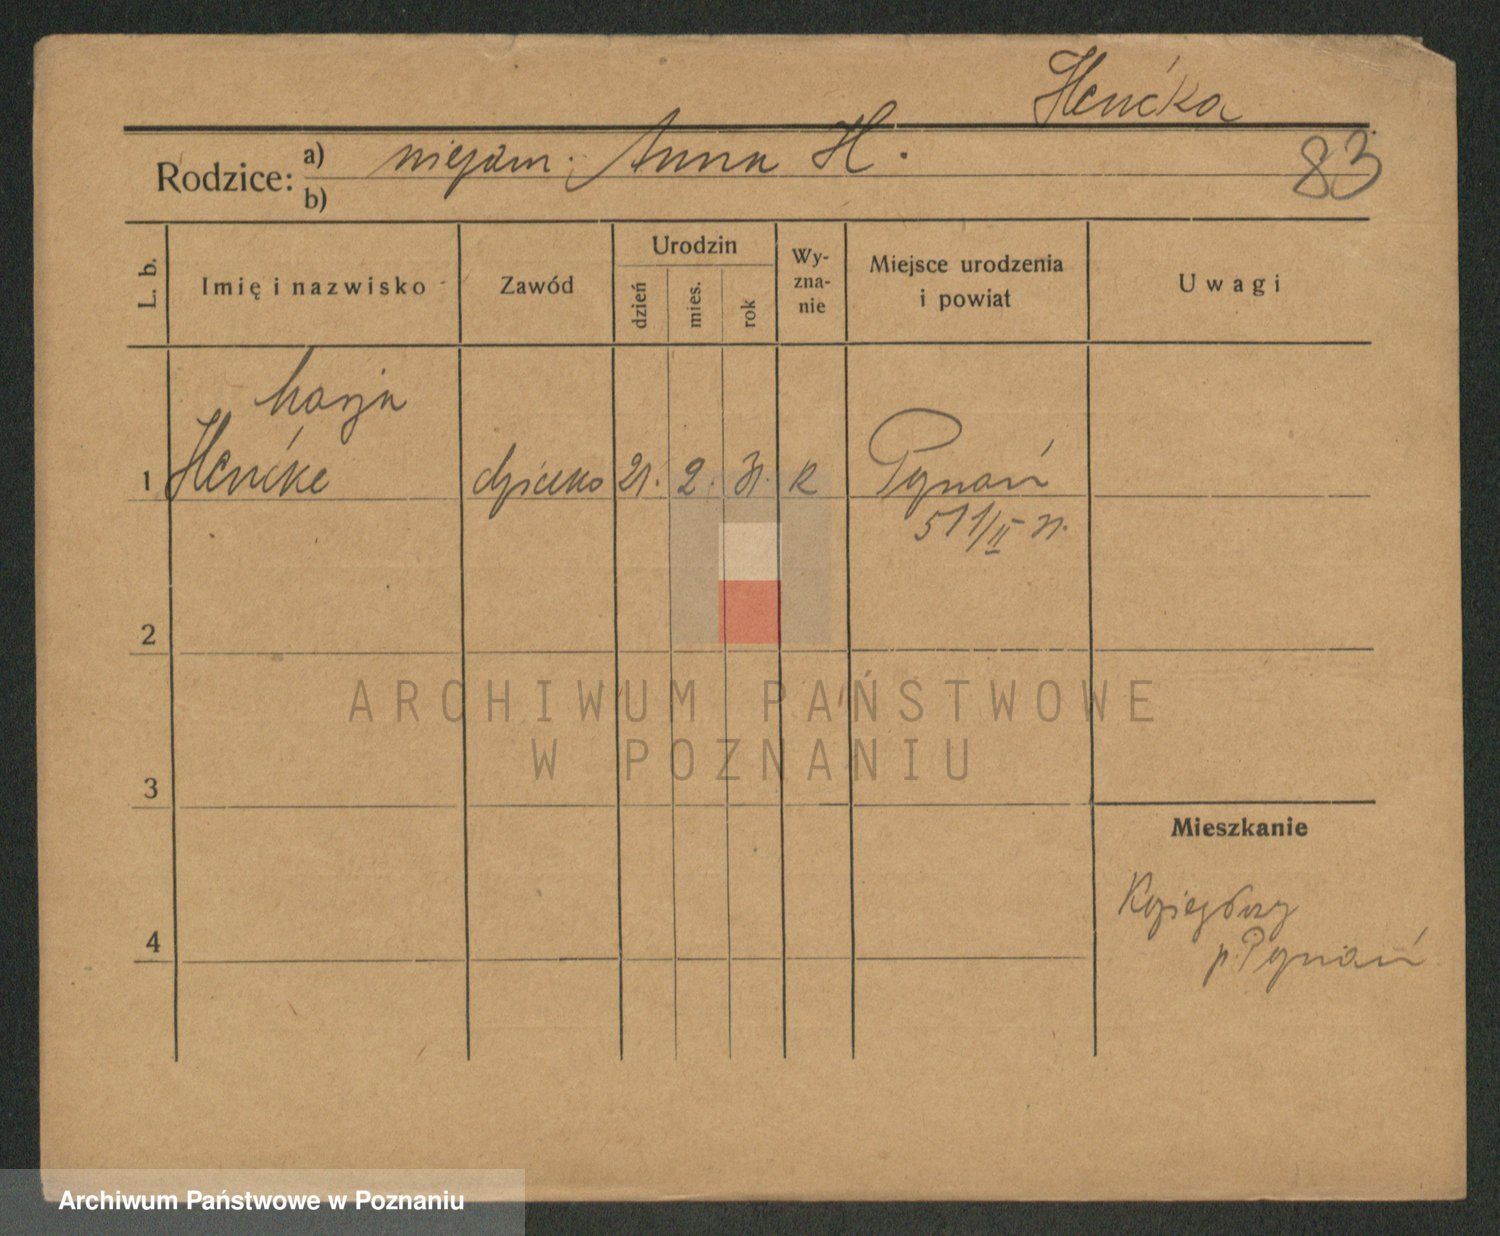 Henćka
Rodzice: a) niezam. Anna H. 83
b)
L. b. Imię i nazwisko Zawód Urodzin dzień mies. rok Wyznanie Miejsce urodzenia i powiat Uwagi
Marja
1 Henćke dziecko 21. 2. 31. k Poznań
511/II 31.
2
3
Mieszkanie
Koziegłowy
4 p. Poznań
ARCHIWUM PAŃSTWOWE
W POZNANIU
Archiwum Państwowe w Poznaniu